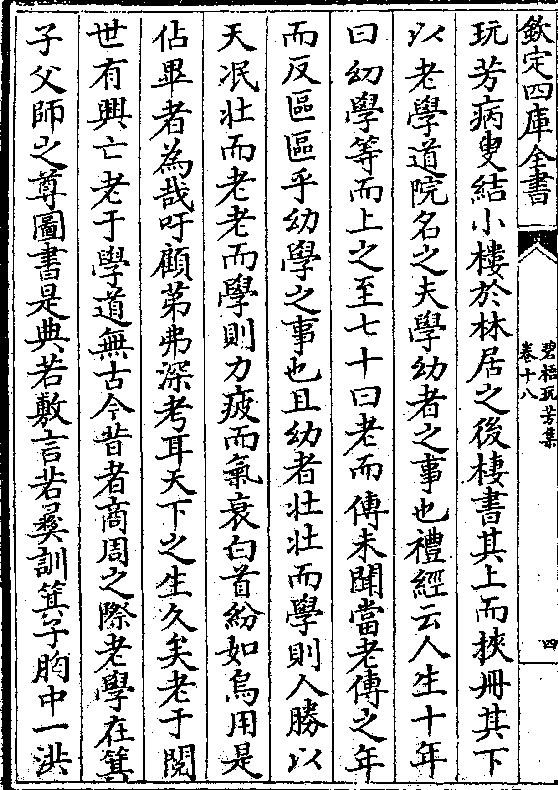 欽定四庫全書
碧梧玩芳集
卷十八
四
玩芳病叟結小樓於林居之後棲書其上而挾冊其下
以老學道院名之夫學幼者之事也禮經云人生十年
曰幼學等而上之至七十曰老而傳未聞當老傳之年
而反區區乎幼學之事也且幼者壯壯而學則人勝以
天泯壯而老老而學則力疲而氣衰白首紛如烏用是
佔畢者為哉吁顧弟弗深考耳天下之生久矣老于閱
世有興亡老于學道無古今昔者商周之際老學在箕
子父師之尊圖書是典若敷言若彞訓箕子胸中一洪